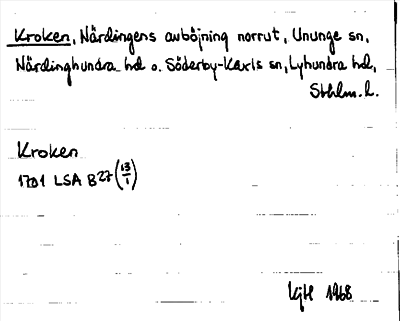 Kroken, Närdingens avböjning norrut, Ununge sn,
Närdinghundra hd o. Söderby-Karls sn, Lyhundra hd,
Sthlm. l.
Kroken
1701 LSA B27 (13/1)
1968